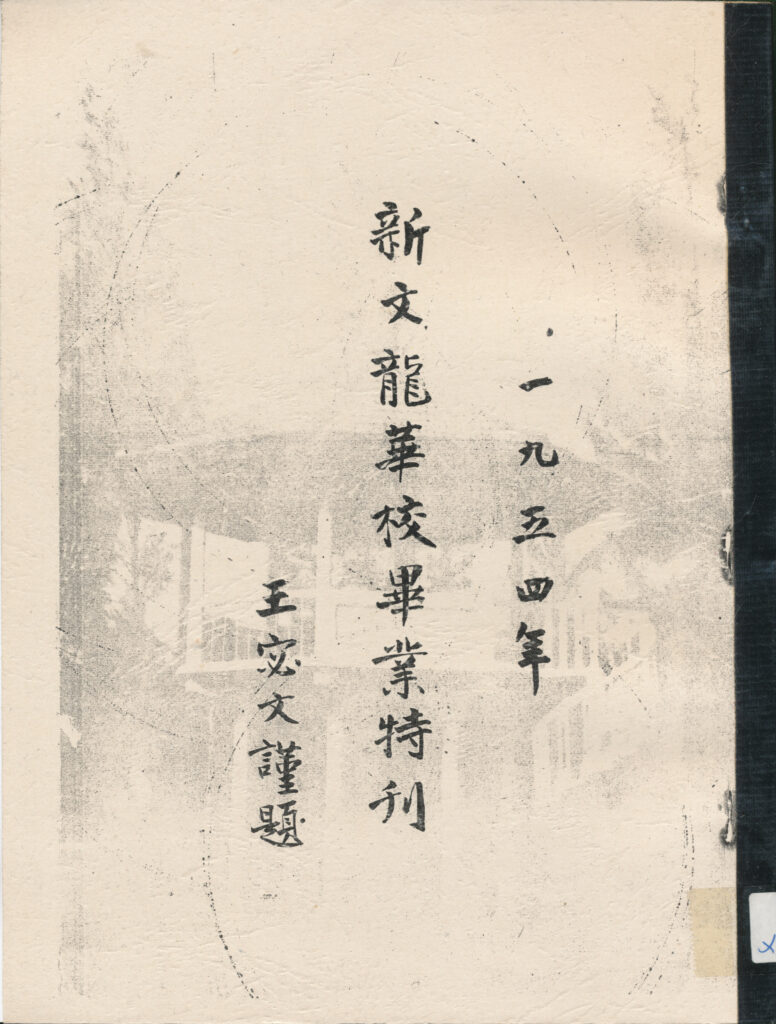 一九五四年
新文龍華校畢業特刊
王宓文謹題